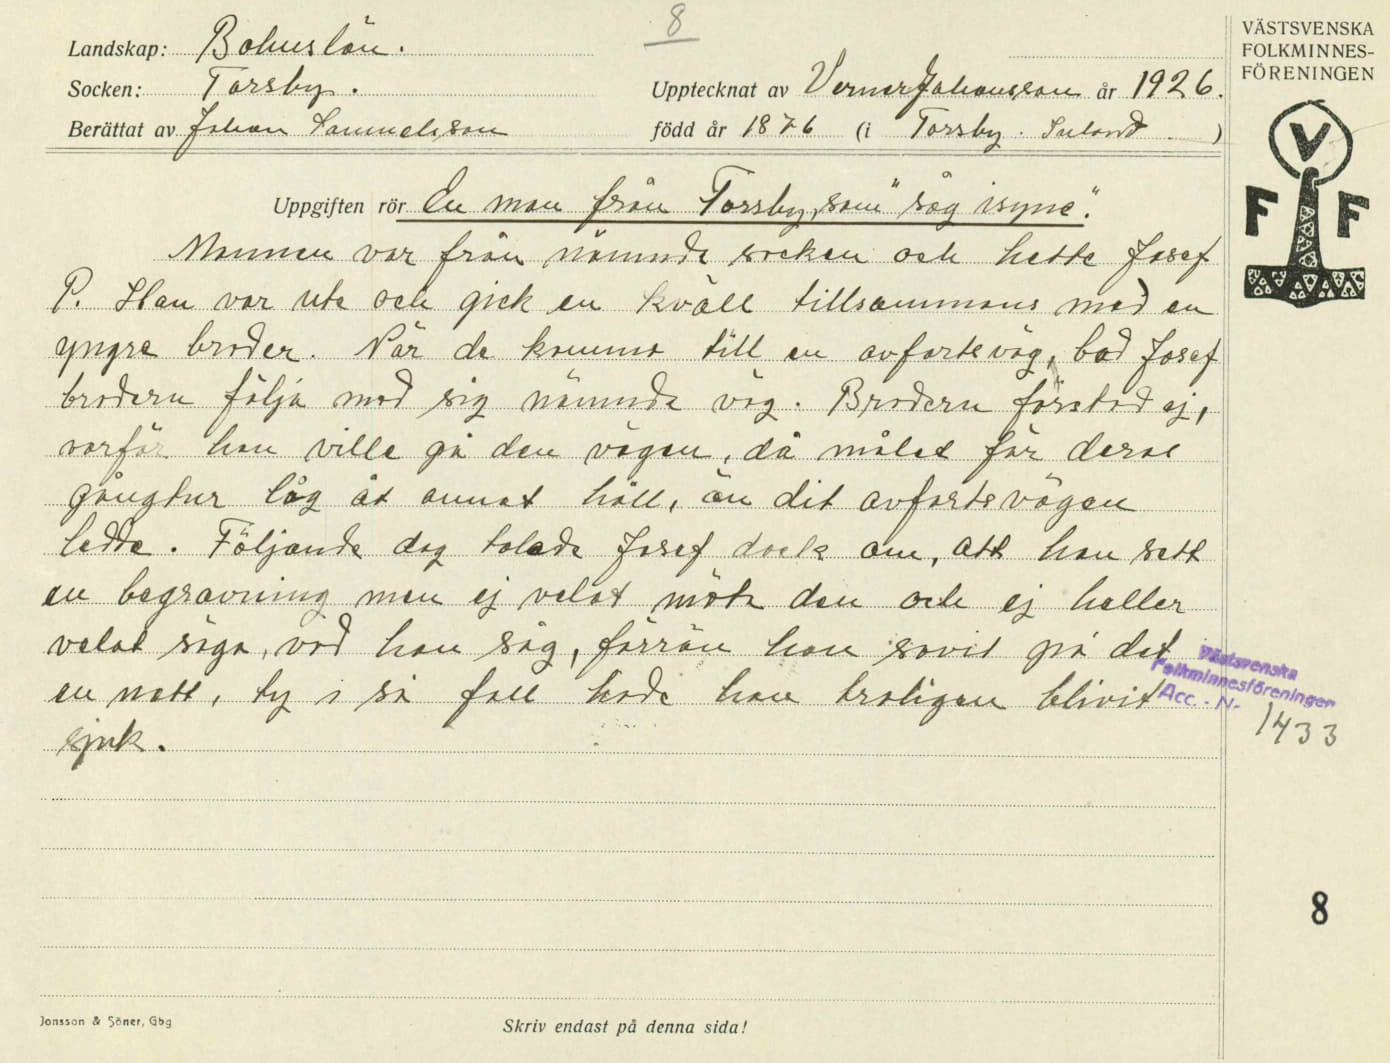 8
VÄSTSVENSKA
FOLKMINNES-
FÖRENINGEN
Landskap: Bohuslän.
Socken: Torsby.
Upptecknat av Verner Johansson år 1926.
Berättat av Johan Samuelsson
född år 1876 (i Torsby. Inland.)
V
F F
Uppgiften rör En man från Torsby, som "såg isyne".
Mannen var från nämnda socken och hette Josef
P. Han var ute och gick en kväll tillsammans med en
yngre broder. När de kommo till en avfartsväg, bad Josef
brodern följa med sig nämnda väg. Brodern förstod ej,
varför han ville gå den vägen, då målet för deras
gångtur låg åt annat håll, än dit avfartsvägen
ledde. Följande dag talade Josef dock om, att han sett
en begravning men ej velat möta den och ej heller
velat säga, vad han såg, förrän han sovit på det
en natt, ty i så fall hade han troligen blivit
sjuk.
Västsvenska
Folkminnesföreningen
Acc. - N-
1433
8
Jonsson & Söner, Gbg
Skriv endast på denna sida!